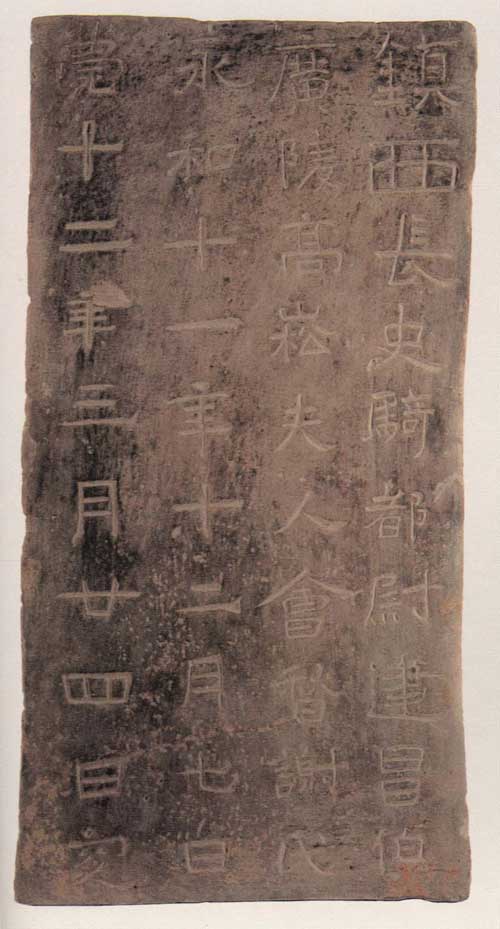 鎮西長史騎都尉建昌伯
廣陵高崧夫人會稽謝氏
永和十一年十二月七日
薨十二年三月廿四日窆